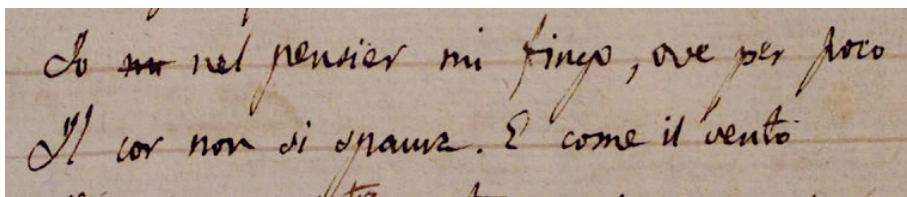 Io nel pensier mi fingo, ove per poco
Il cor non si spaura. E come il vento